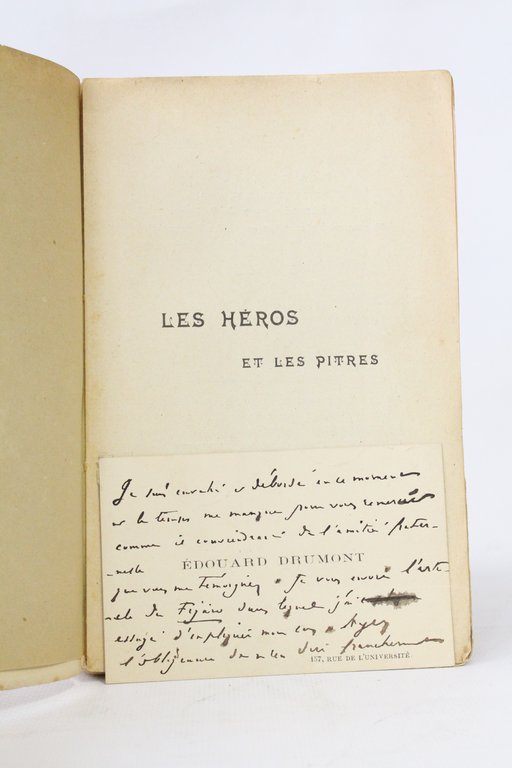 LES HÉROS
ET LES PITRES
Je suis envahi et débordé en ce moment
et le temps me manque pour vous remercier
comme il conviendrait de l'amitié frater-
-nelle
ÉDOUARD DRUMONT
que vous me témoignez. Je vous envoie l'arti-
-cle du Figaro dans lequel j'ai
essayé d'expliquer mon cas. Ayez
l'obligeance de me dire franchement
157, RUE DE L'UNIVERSITÉ.